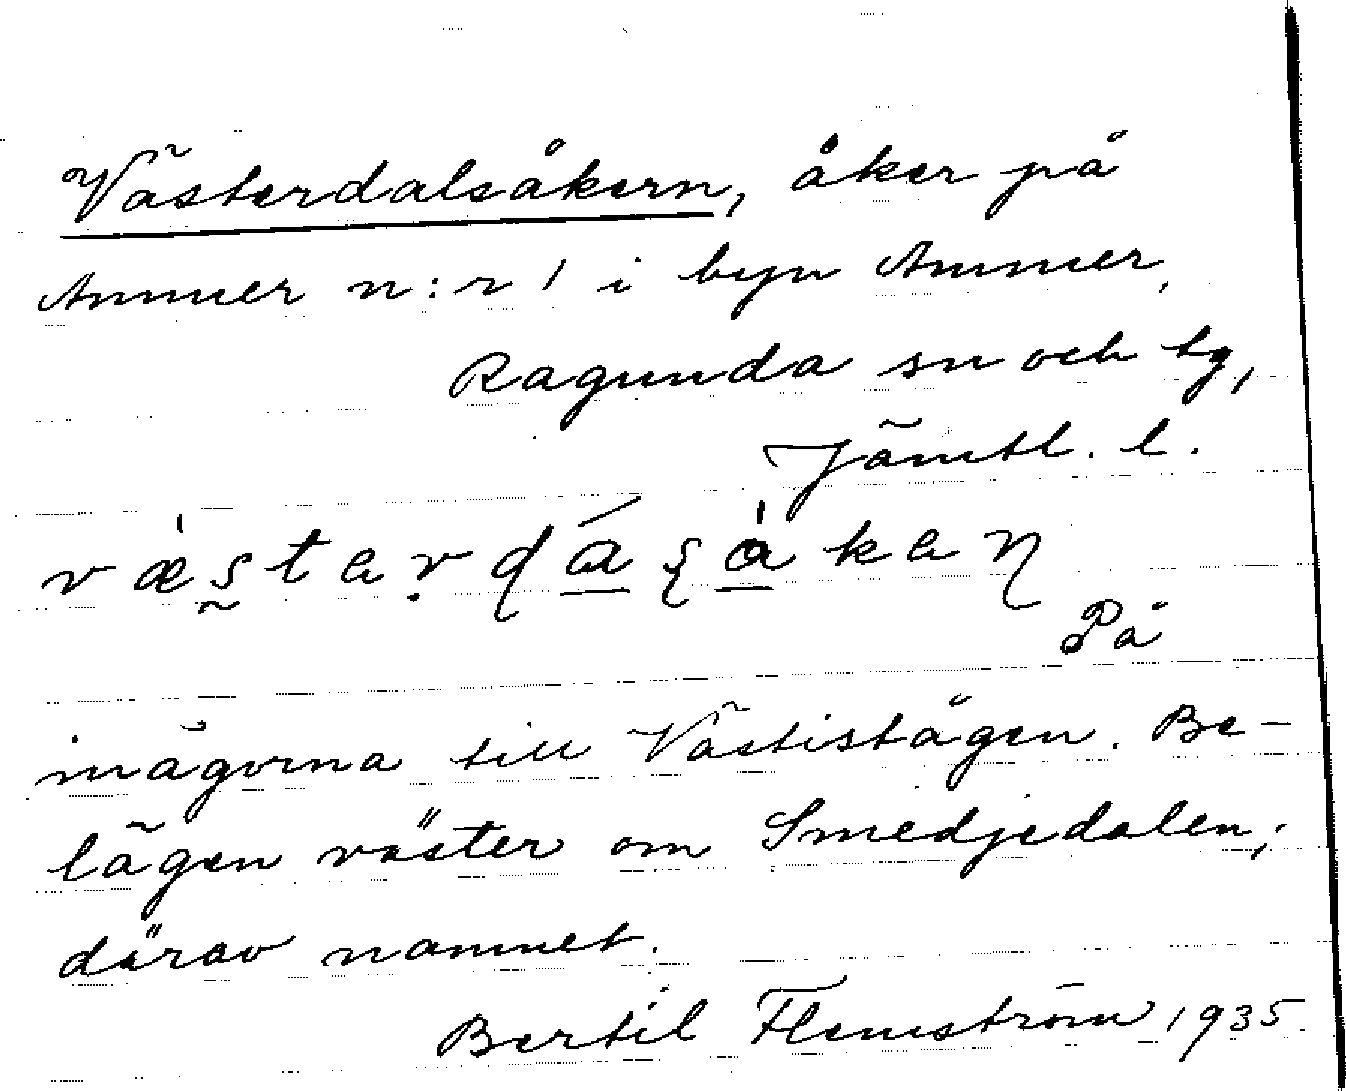 Västerdalsåkern, åker på
Ammer n:r 1 i byn Ammer,
Ragunda sn och tg,
Jämtl. l.
På
inägorna till Västistägen. Be-
lägen väster om Smedjedalen;
därav namnet.
Bertil Flemström 1935.